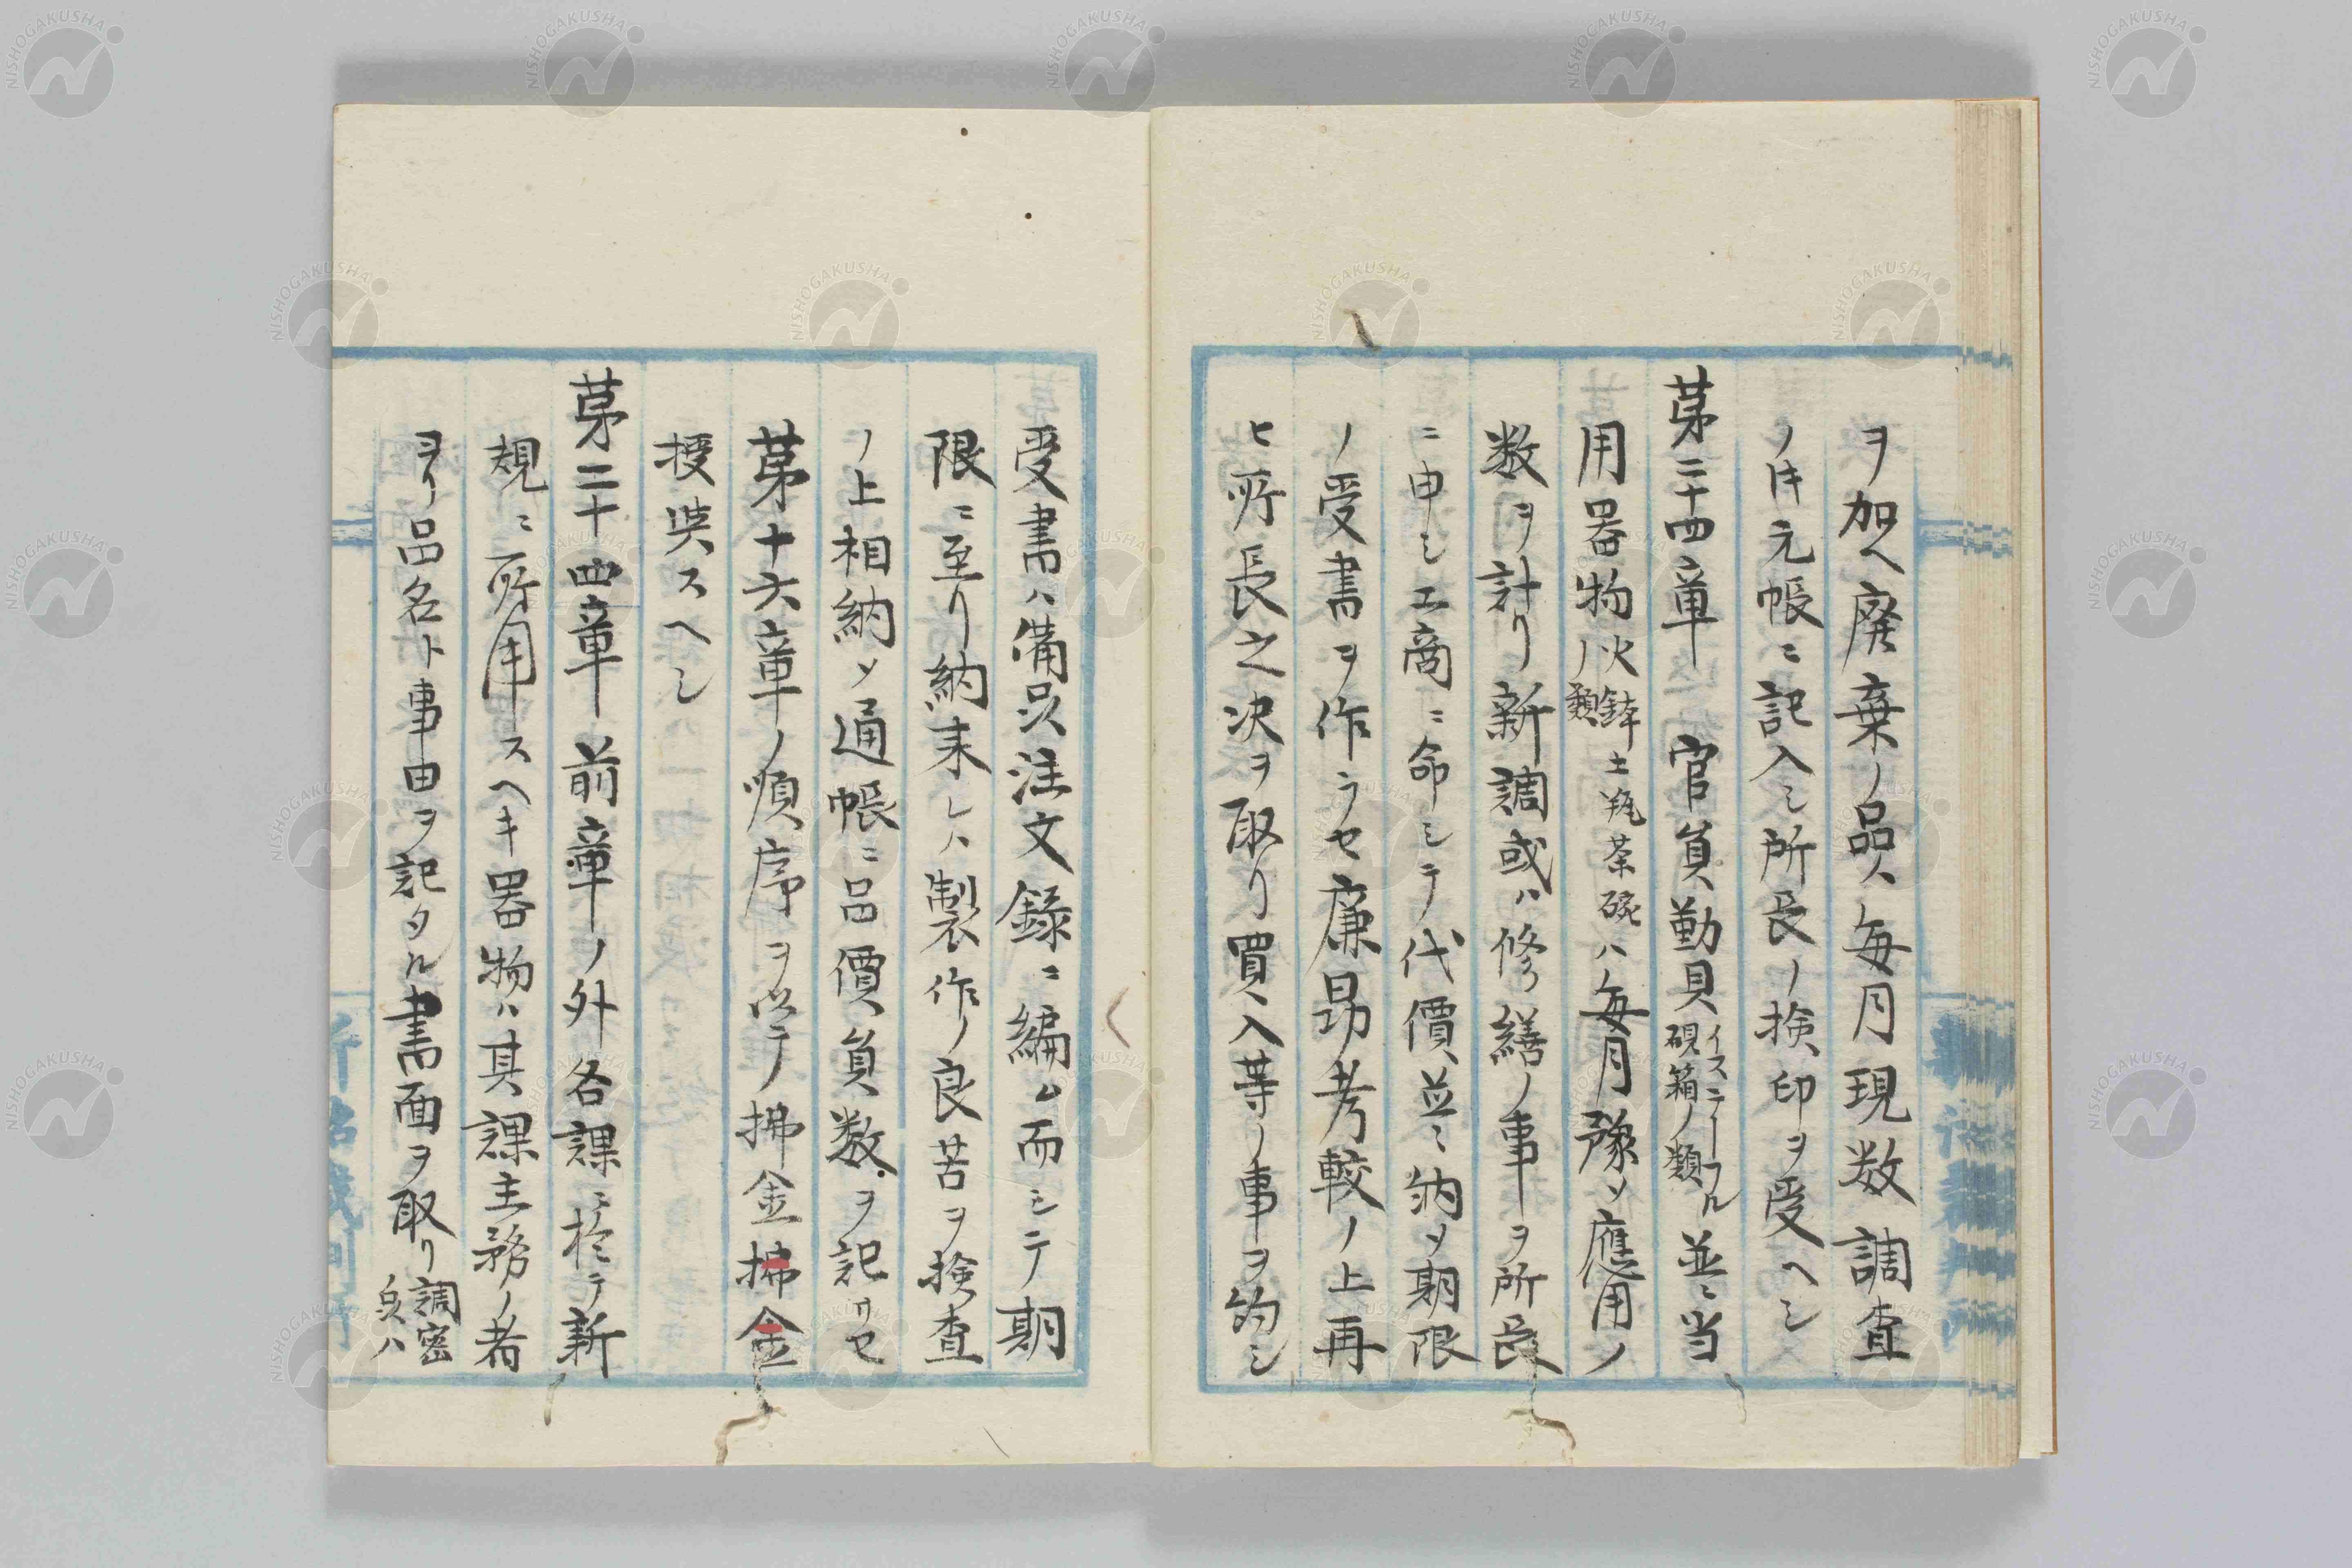 ヲ加ヘ廃棄ノ品ハ毎月現数調査
ノ件元帳ニ記入シ所長ノ検印ヲ受ヘシ
第二十四章 官員勤具イスニテーフル硯箱ノ類並ニ当
用器物火鉢ノ類土瓶茶碗ハ毎月豫メ應用ノ
数ヲ計リ新調或ハ修繕ノ事ヲ所長
ニ申シ工商ニ命シテ代價並ニ納メ期限
ノ受書ヲ作ラセ廉昂考較ノ上再
ヒ所長之决ヲ取リ買入等ノ事ヲ約シ
受書ハ備品注文録ニ編ム而シテ期
限ニ至リ納来レハ製作ノ良苦ヲ検査
ノ上相納メ通帳ニ品價員数ヲ記サセ
第十六章ノ順序ヲ以テ拂金拂金
授與スヘシ
第二十四章 前章ノ外各課ニ於テ新
規ニ所用スヘキ器物ハ其課主務ノ者
ヨリ品名ト事由ヲ記タル書面ヲ取リ調密品ハ
NISHOGAKUSHA